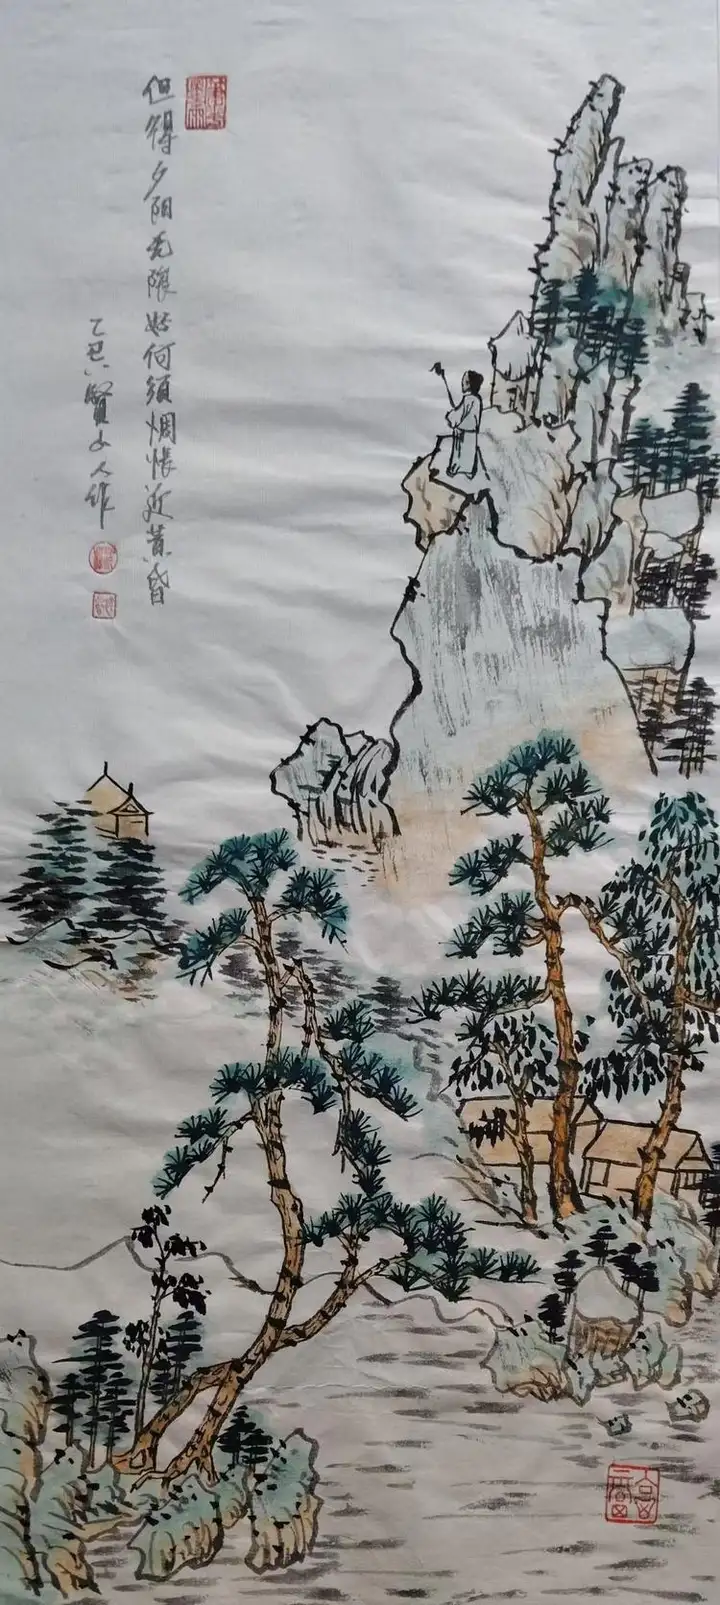 但得夕阳无限好何须惆怅近黄昏
乙丑八贤山人作